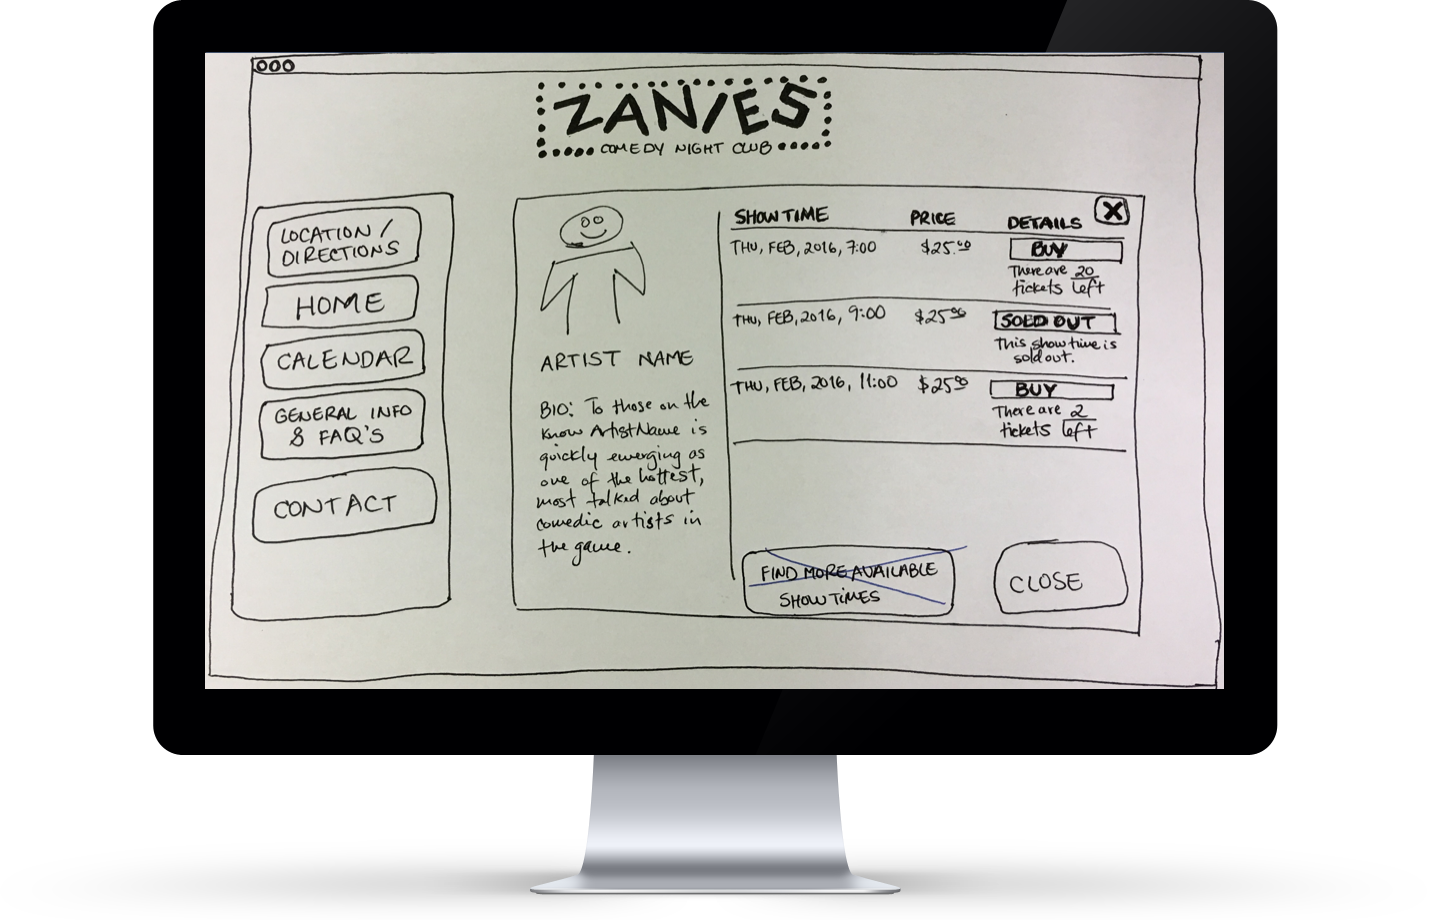 ZANIES
COMEDY NIGHT CLUB
LOCATION /
DIRECTIONS
HOME
CALENDAR
GENERAL INFO
& FAQ'S
CONTACT
ARTIST NAME
BIO: To those on the
know ArtistName is
quickly emerging as
one of the hottest,
most talked about
comedic artists in
the game.
SHOWTIME PRICE DETAILS X
THU, FEB, 2016, 7:00 $25.00 BUY
There are 20
tickets left
THU, FEB, 2016, 9:00 $25.00 SOLD OUT
This show time is
sold out.
THU, FEB, 2016, 11:00 $25.00 BUY
There are 2
tickets left
FIND MORE AVAILABLE
SHOWTIMES
CLOSE